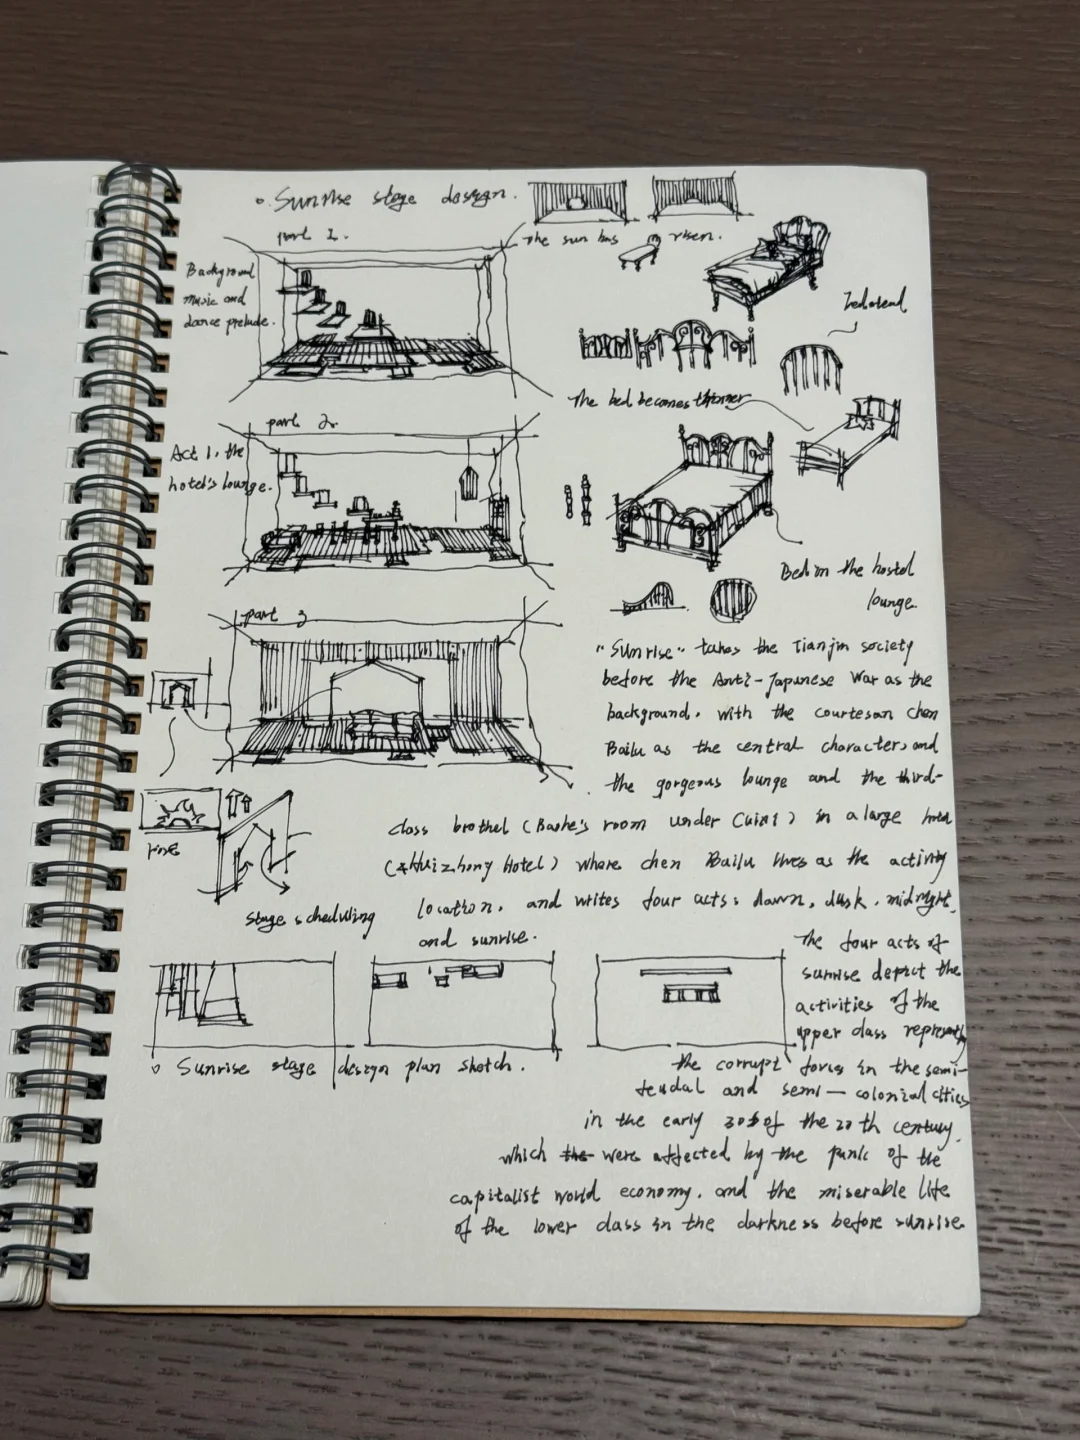 Sunrise stage design.
part 1.
The sun has risen.
Background
music and
dance prelude.
bedstead
The bed becomes thinner
part 2.
Act 1, the
hotel's lounge.
Bed in the hostel
lounge.
part 3
"Sunrise" takes the Tianjin society
before the Anti-Japanese War as the
background, with the courtesan Chen
Bailu as the central character, and
the gorgeous lounge and the third-
class brothel (Baohe's room under Cuixi) in a large hotel
(Huizhong Hotel) where chen Bailu lives as the activity
location, and writes four acts: dawn, dusk, midnight,
and sunrise.
stage scheduling
The four acts of
sunrise depict the
activities of the
upper class representing
the corrupt forces in the semi-
feudal and semi-colonial cities
in the early 30s of the 20th century,
which were affected by the panic of the
capitalist world economy, and the miserable life
of the lower class in the darkness before sunrise
Sunrise stage design plan sketch.